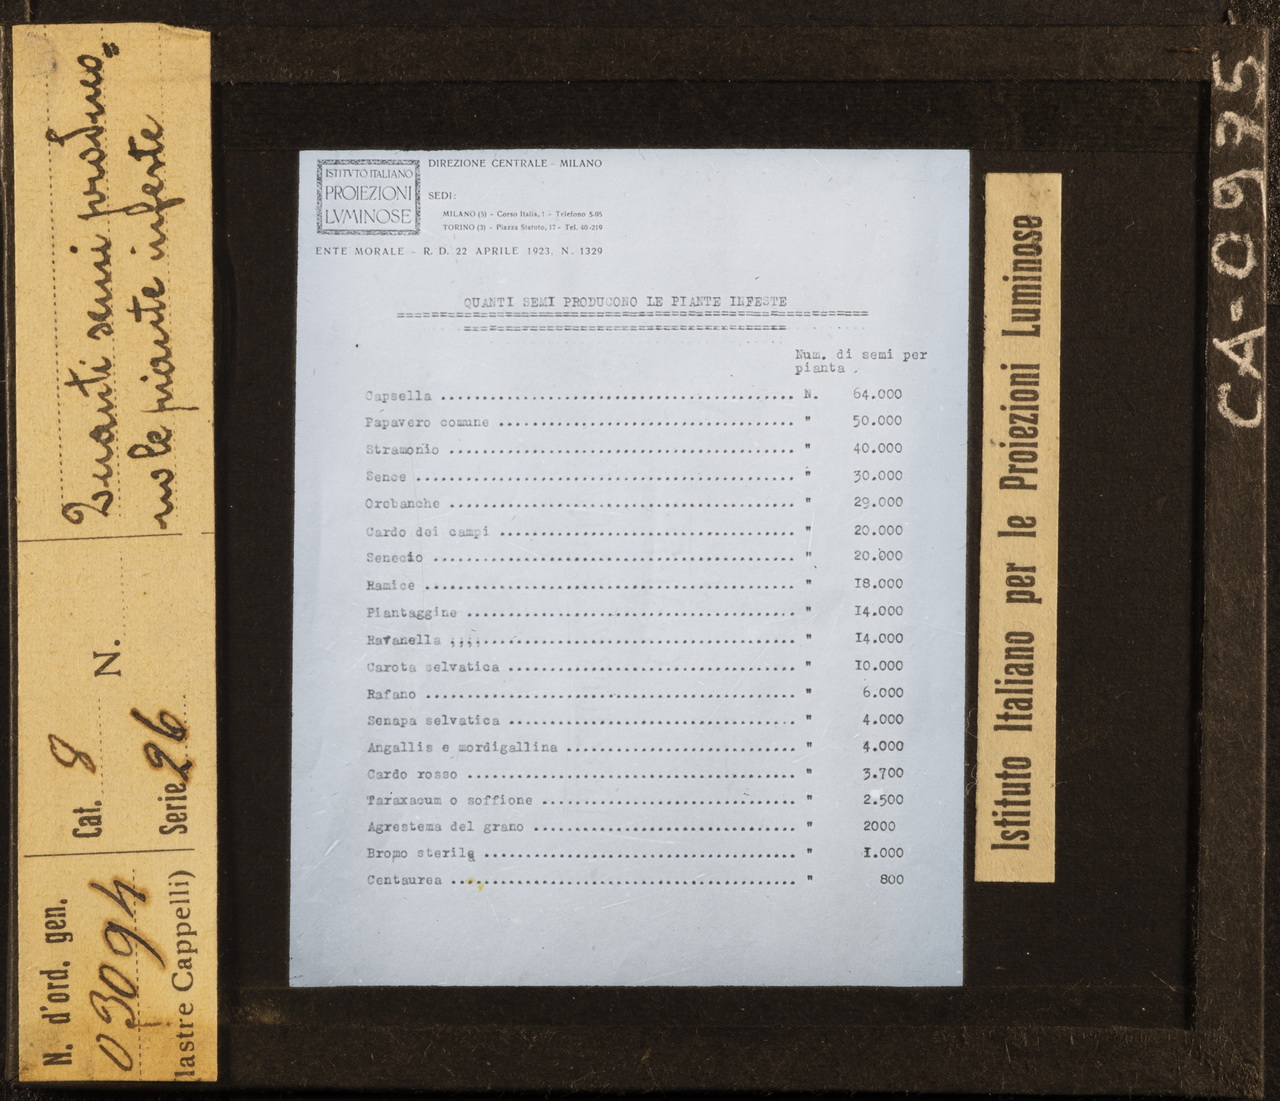 Quanti semi produco=
no le piante infeste
N.
Cat. 8
Serie 26
N. d'ord. gen.
03094
lastre Cappelli)
ISTITVTO ITALIANO
PROIEZIONI
LVMINOSE
DIREZIONE CENTRALE - MILANO
SEDI:
MILANO (5) - Corso Italia, 1 - Telefono 5-95
TORINO (3) - Piazza Statuto, 17 - Tel. 40-219
ENTE MORALE - R. D. 22 APRILE 1923, N. 1329
QUANTI SEMI PRODUCONO LE PIANTE INFESTE
Num. di semi per
pianta .
Capsella ........................................... N. 64.000
Papavero comune .................................... " 50.000
Stramonio .......................................... " 40.000
Sence .............................................. " 30.000
Orobanche .......................................... " 29.000
Cardo dei campi .................................... " 20.000
Senecio ............................................ " 20.000
Ramice ............................................. " 18.000
Piantaggine ........................................ " 14.000
Ravanella ;;;;...................................... " 14.000
Carota selvatica ................................... " 10.000
Rafano ............................................. " 6.000
Senapa selvatica ................................... " 4.000
Angallis e mordigallina ............................ " 4.000
Cardo rosso ........................................ " 3.700
Taraxacum o soffione ............................... " 2.500
Agrestema del grano ................................ " 2000
Bromo sterile ...................................... " 1.000
Centaurea .......................................... " 800
Istituto Italiano per le Proiezioni Luminose
CA-0975